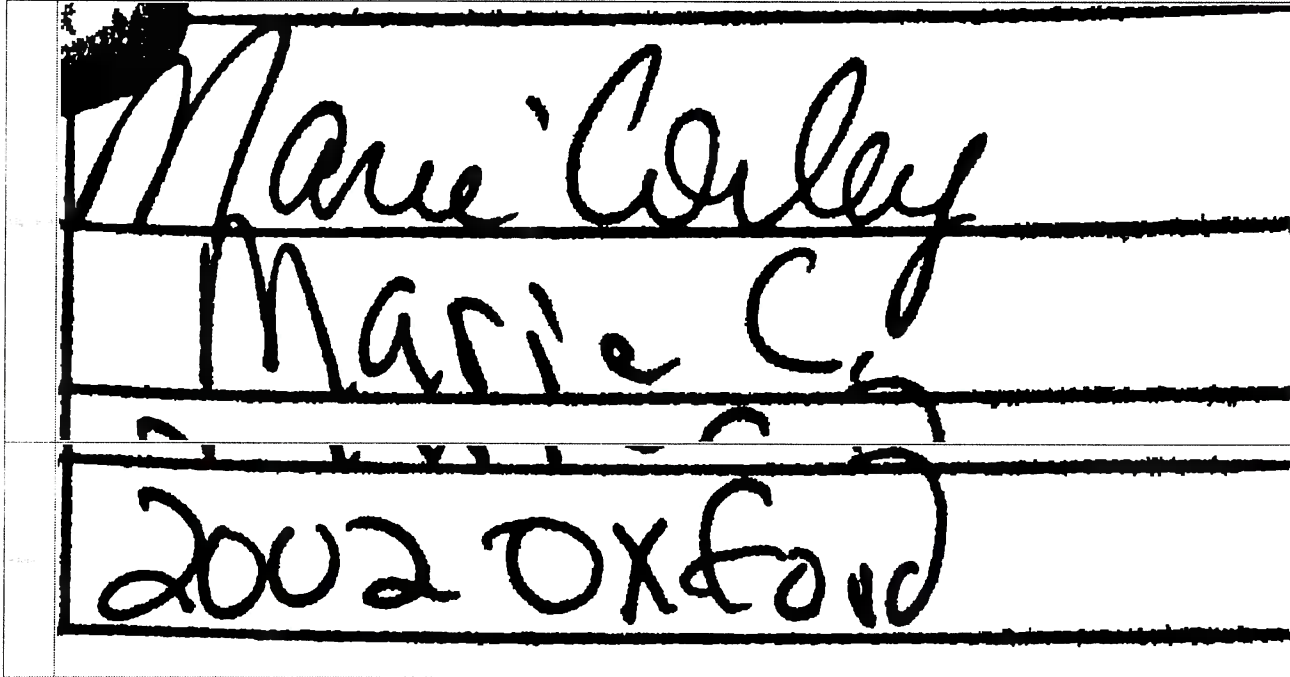 Marie Corley
Marie C.
2002 Oxford